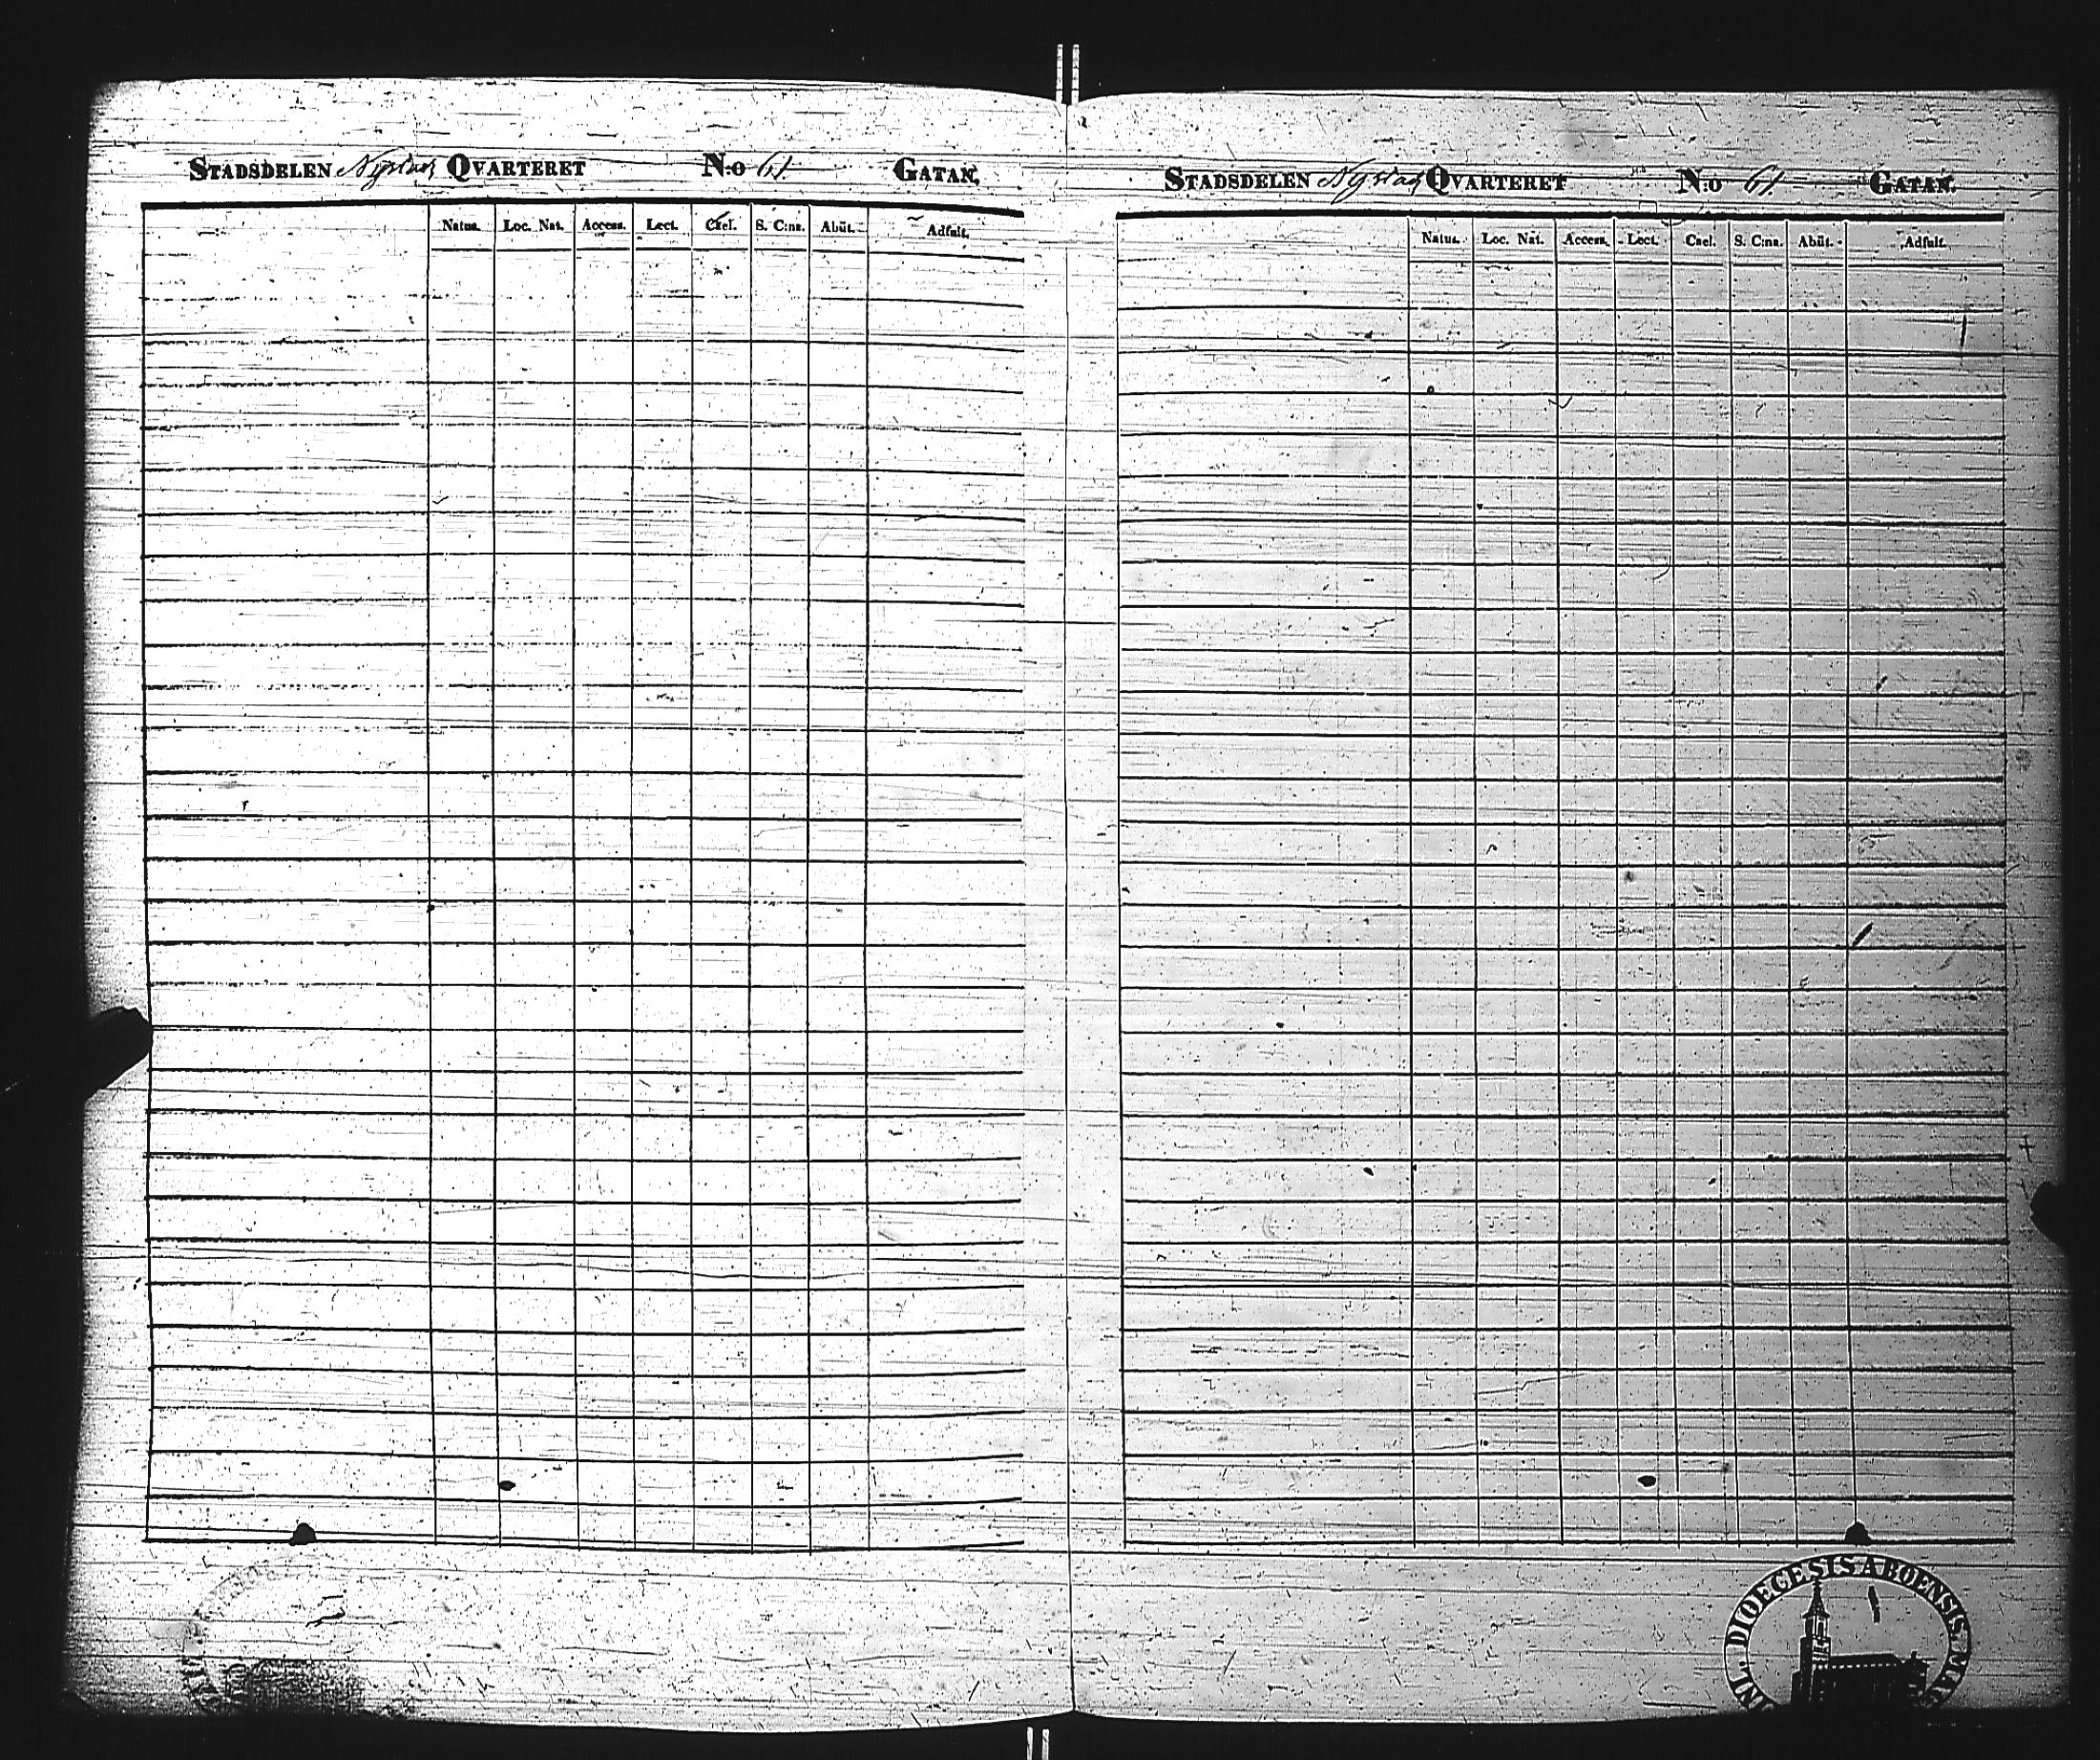 STADSDELEN Nystad QVARTERET N:o 61 GATAN.
Natus. Loc. Nat. Access. Lect. Cael. S. C:na. Abiit. Adfuit.
STADSDELEN Nystad QVARTERET N:o 61 GATAN.
Natus. Loc. Nat. Access. Lect. Cael. S. C:na. Abiit. Adfuit.
DIOECESIS ABOENSIS